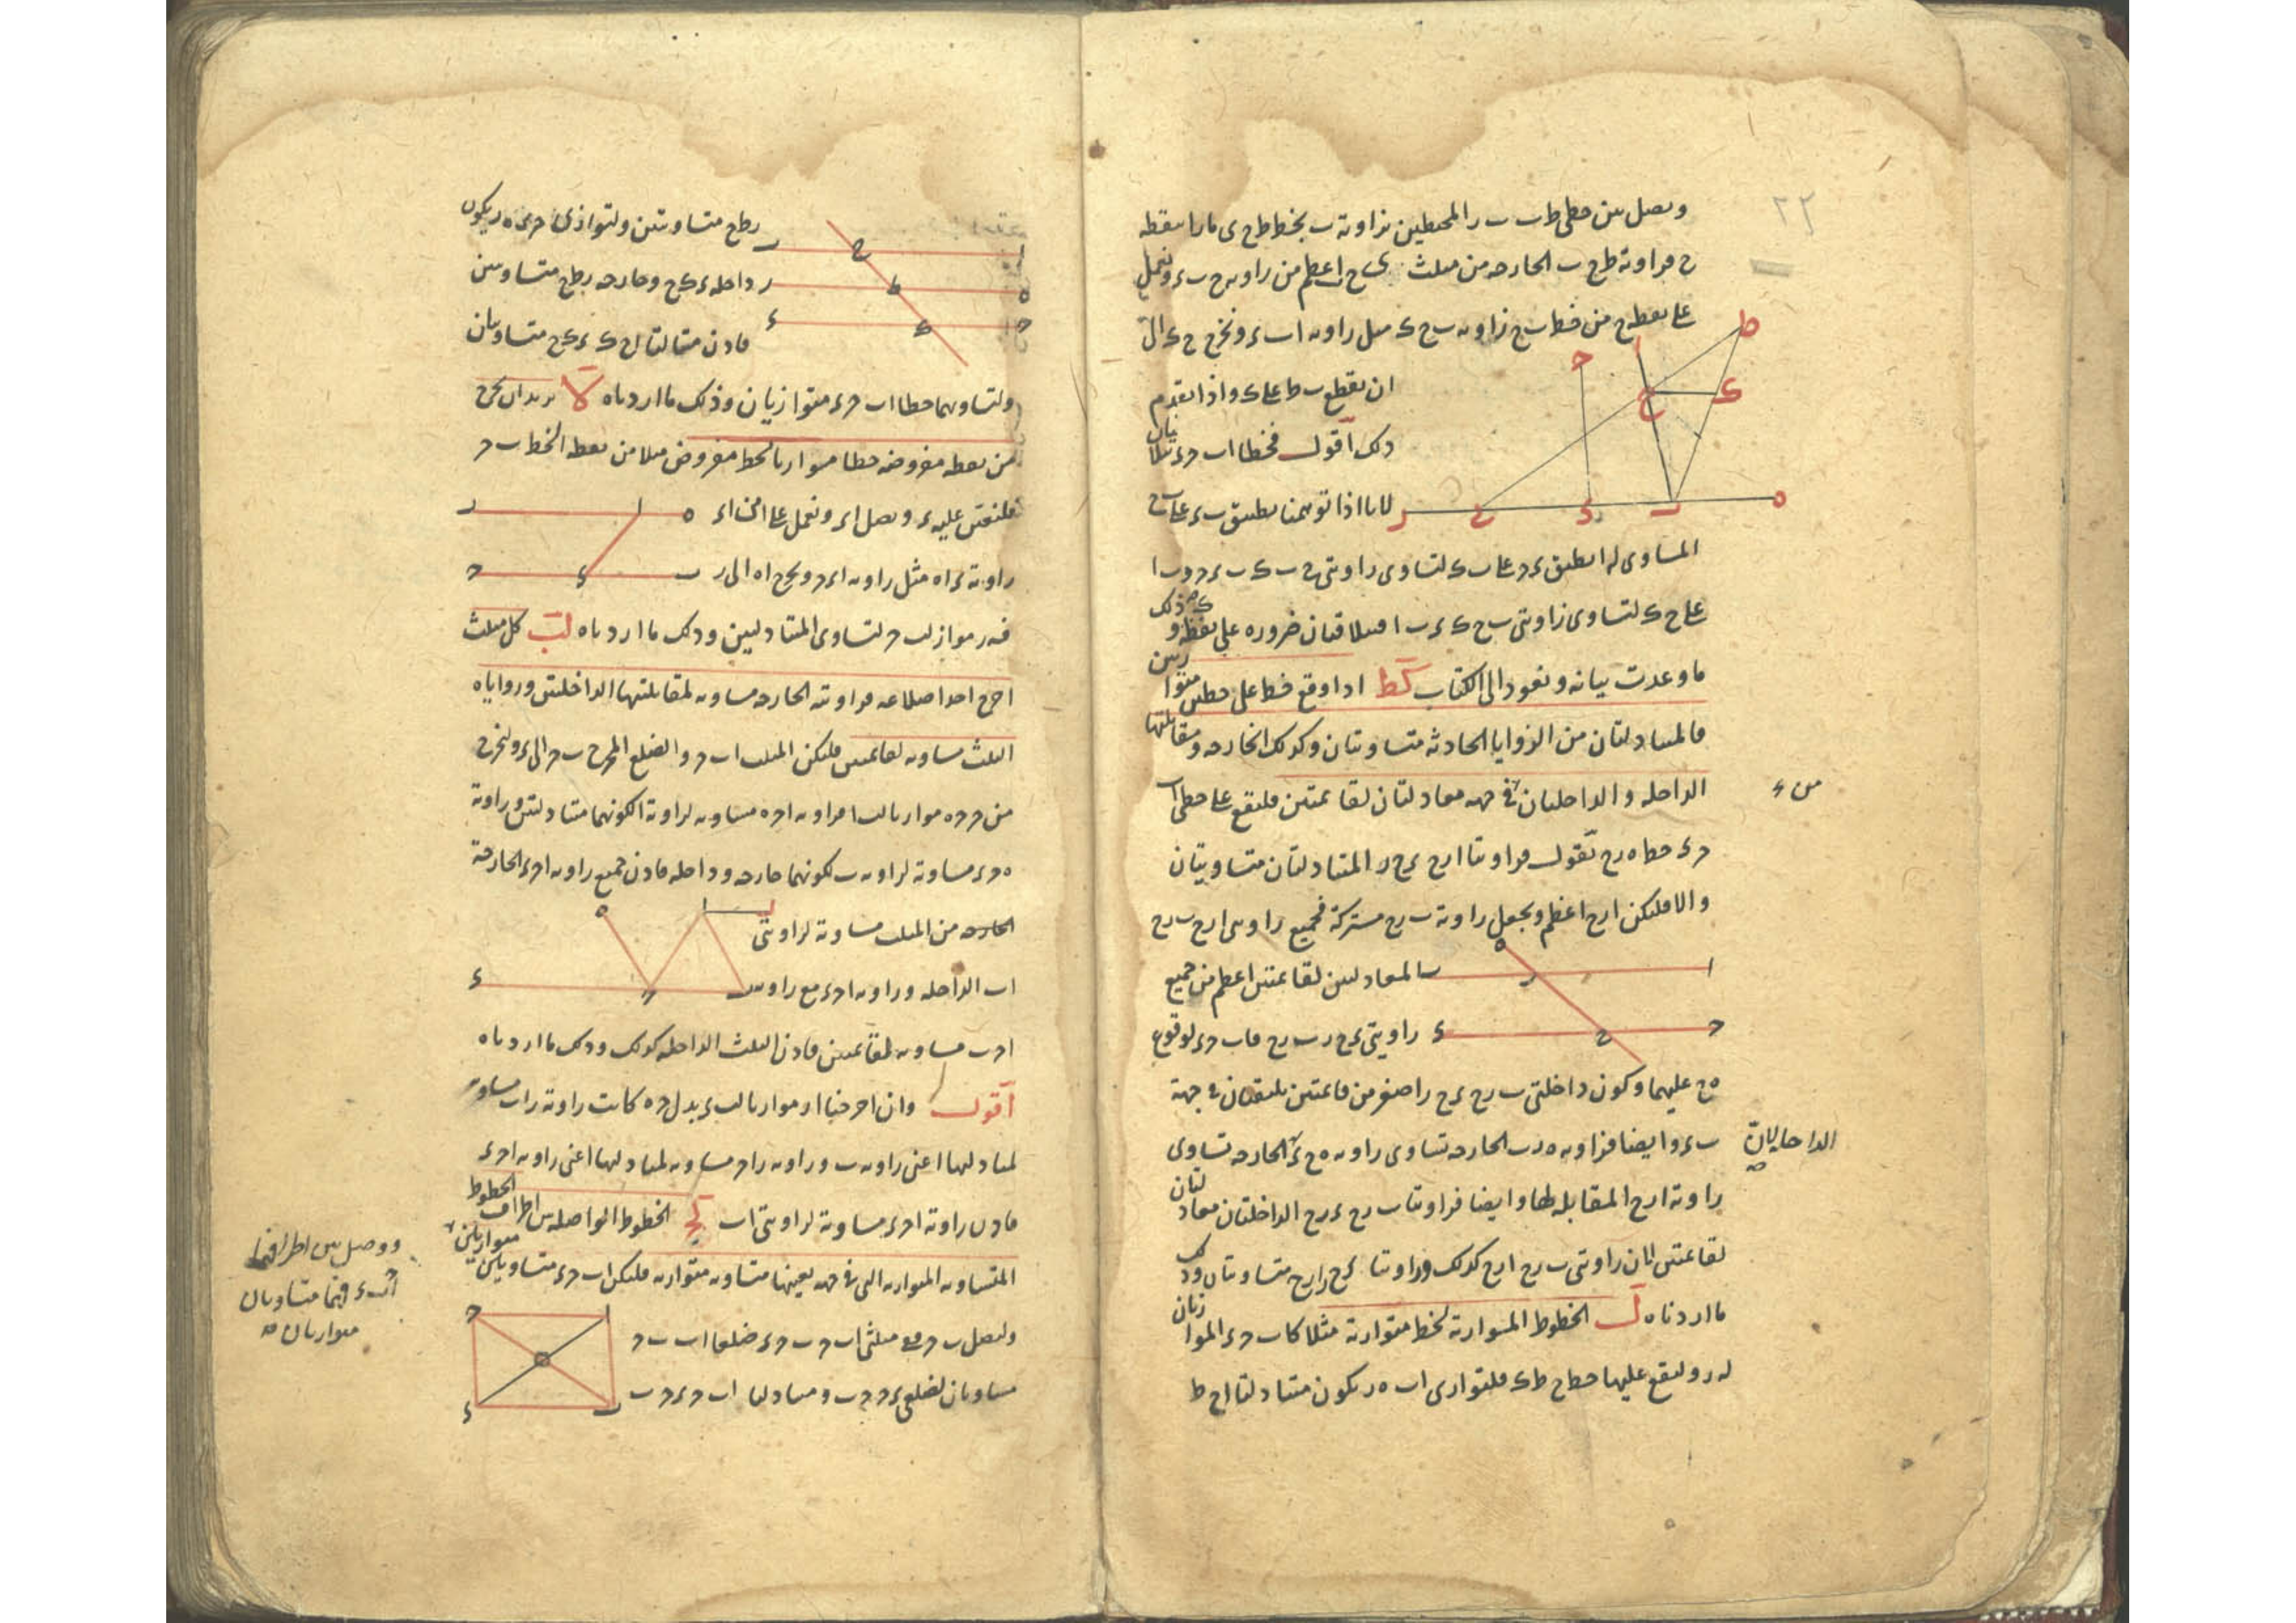 ٢٢
ونصل بين خطى ط ب ب ر المحيطين بزاوية ب بخط ط ح ى مارا بنقطة
ح فزاوية ط ح ب الخارجة من مثلث ى ح اعظم من زاوية ح ب ء ونعمل
على نقطة ح من خط ب ح زاوية ب ح ك مثل زاوية ا ب ء ونخرج ح ك الى
ان يقطع ب ط على ك واذا تقدم
ذلك اقول فخطا ا ب ح ء
لانا اذا توهمنا تطبيق ب ء على ب ح
المساوى له انطبق ء ح على ب ك لتساوى زاويتى ح ب ك ب ء ح و ب ا
على ح ك لتساوى زاويتى ب ح ك ء ب ا فيتلاقيان ضرورة على نقطة ك وذلك
ما وعدت بيانه ونعود الى الكتاب كط اذا وقع خط على خطين متوازيين
فالمتبادلتان من الزوايا الحادثة متساويتان وكذلك الخارجة ومقابلتها
الداخلة والداخلتان فى جهة معادلتان لقائمتين فليقع على خطى ا ب
من ء
ح ء خط ه ر ح نقول فزاويتا ا ر ح ء ح ر المتبادلتان متساويتان
والا فليكن ا ر ح اعظم ونجعل زاوية ب ر ح مشتركة فجميع زاويتى ا ر ح ب ر ح
المعادلتين لقائمتين اعظم من جميع
زاويتى ء ح ر ب ر ح فا ب ح ء لوقوع
ه ح عليهما وكون داخلتى ب ر ح ء ح ر اصغر من قائمتين يلتقيان فى جهة
ب ء وايضا فزاوية ه ر ب الخارجة تساوى زاوية ه ح ء الخارجة تساوى
زاوية ا ر ح المقابلة لها وايضا فزاويتا ب ر ح ء ح ر الداخلتان معادلتان
لقائمتين لان زاويتى ب ر ح ا ر ح كذلك وزاويتا ء ح ر ا ر ح متساويتان وذلك
ما اردناه ل الخطوط المتوازية لخط متوازية مثلا كا ب ح ء الموازيان
له ر وليقع عليها خط ح ط ك فلتوازى ا ب ه ر يكون متبادلتا ا ح ط
ر ط ح متساويتين ولتوازى ح ء ه ر يكون
داخلة ء ك ح وخارجة ر ط ح متساويتين
فاذن متبادلتا ا ح ك ء ك ح متساويتان
ولتساويهما خطا ا ب ح ء متوازيان وذلك ما اردناه لا نريد ان نخرج
من نقطة مفروضة خطا موازيا لخط مفروض مثلا من نقطة ا لخط ب ح
فلنعين عليه ء ونصل ا ء ونعمل على ا من ا ء
زاوية ء ا ه مثل زاوية ا ء ح ونخرج ا ه الى ر
فه ر مواز ل ب ح لتساوى المتبادلتين وذلك ما اردناه لب كل مثلث
اخرج احد اضلاعه فزاويته الخارجة مساوية لمقابلتيها الداخلتين وزواياه
الثلث مساوية لقائمتين فليكن المثلث ا ب ح والضلع المخرج ب ح الى ء ولنخرج
من ح ح ه موازيا ل ب ا فزاوية ا ح ه مساوية لزاوية ا لكونهما متبادلتين وزاوية
ه ح ء مساوية لزاوية ب لكونهما خارجة وداخلة فاذن جميع زاوية ا ح ء الخارجة
الخارجة من المثلث مساوية لزاويتى
ا ب الداخلة وزاوية ا ح ء مع زاوية
ا ح ب مساوية لقائمتين فاذن الثلث الداخلة كذلك وذلك ما اردناه
اقول وان اخرجنا ا ر موازيا ل ب ء بدل ح ه كانت زاوية ر ا ب مساوية
لمتبادلها اعنى زاوية ب وزاوية ر ا ح مساوية لمتبادلها اعنى زاوية ا ح ء
فاذن زاوية ا ح ء مساوية لزاويتى ا ب لج الخطوط الواصلة بين اطراف الخطوط
المتساوية المتوازية التى فى جهة بعينها متساوية متوازية فليكن ا ب ح ء متساويين متوازيين
ولنصل ب ح ففى مثلثى ا ب ح ب ح ء ضلعا ا ب ب ح
مساويان لضلعى ء ح ح ب ومتبادلتا ا ب ح ء ح ب
ووصل بين اطرافهما
ا ح ب ء فهما متساويان
متوازيان